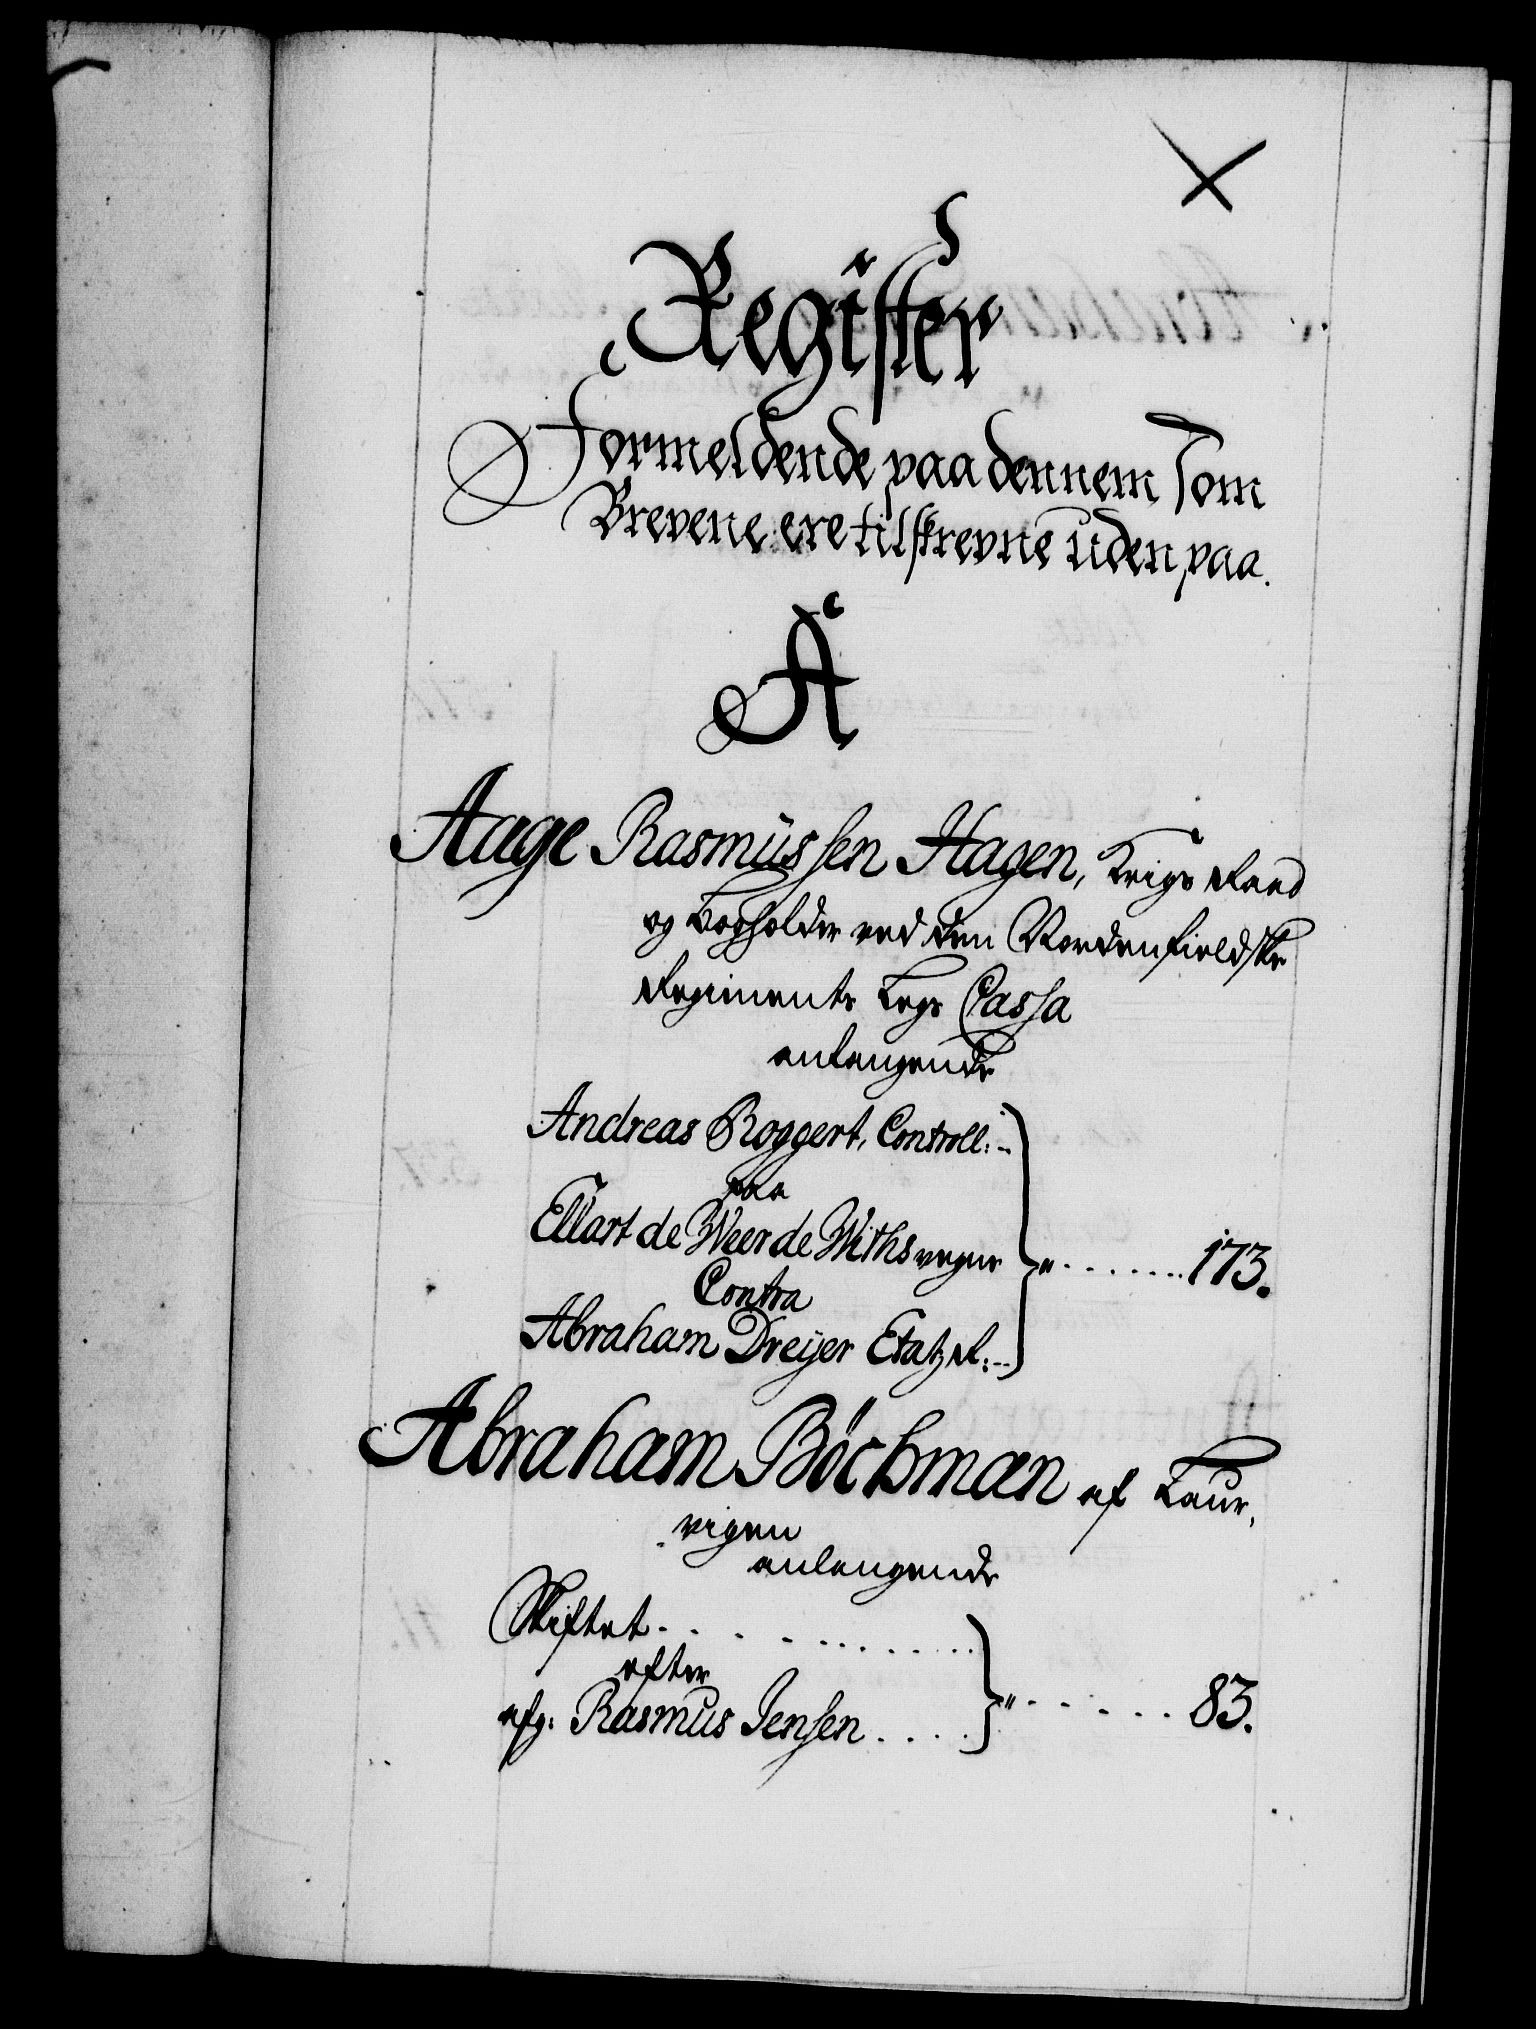 Register
Formeldende paa dennem Som
Brevene ere tilskrevne uden paa.
A
Aage Rasmussen Hagen, Krigs Raad
og Bogholder ved den Nordenfieldske
Regiments Krigs Cassa
anlangende
Andreas Roggert, Controll:
paa
Ellart de Weer de Withs vegne
Contra
Abraham Dreyer Etatz R: } " ....... 173.
Abraham Böckman af Laur,
vigen
anlangende
Skiftet . . . . . . . . . .
efter
afg: Rasmus Jensen . . . . } " . . . . . . 83.